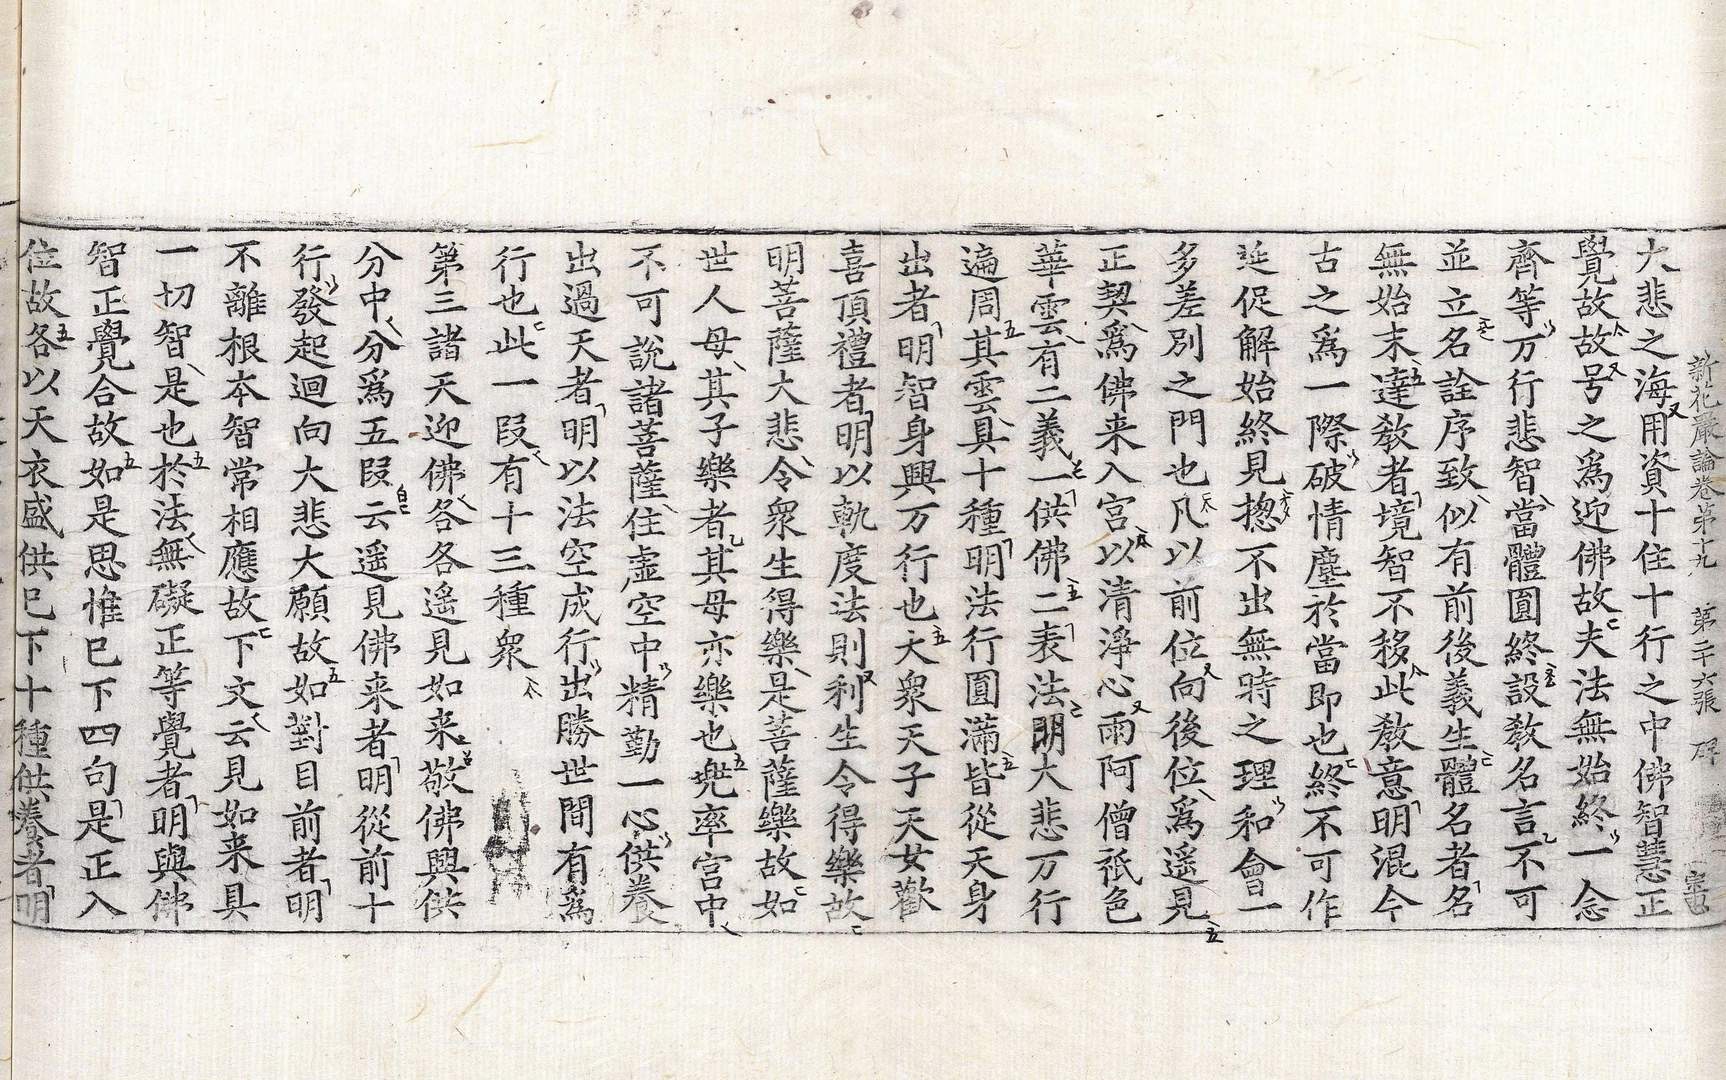 新花嚴論卷第十九 第二十六張 碑
大悲之海用資十住十行之中佛智慧正
覺故故号之爲迎佛故夫法無始終一念
齊等万行悲智當體圓終設教名言不可
並立名詮序致似有前後義生體名者名
無始末達教者境智不移此教意明混今
古之爲一際破情塵於當即也終不可作
延促解始終見揔不出無時之理和會一
多差別之門也凡以前位向後位爲遥見
正契爲佛来入宮以清淨心雨阿僧祇色
華雲有二義一供佛二表法明大悲万行
遍周其雲具十種明法行圓滿皆從天身
出者明智身興万行也大衆天子天女歡
喜頂禮者明以軌度法則利生令得樂故
明菩薩大悲令衆生得樂是菩薩樂故如
世人母其子樂者其母亦樂也兠率宮中
不可說諸菩薩住虛空中精勤一心供養
出過天者明以法空成行出勝世間有爲
行也此一段有十三種衆
第三諸天迎佛各各遥見如来敬佛興供
分中分爲五段云遥見佛来者明從前十
行發起迴向大悲大願故如對目前者明
不離根本智常相應故下文云見如来具
一切智是也於法無礙正等覺者明與佛
智正覺合故如是思惟已下四句是正入
位故各以天衣盛供已下十種供養者明